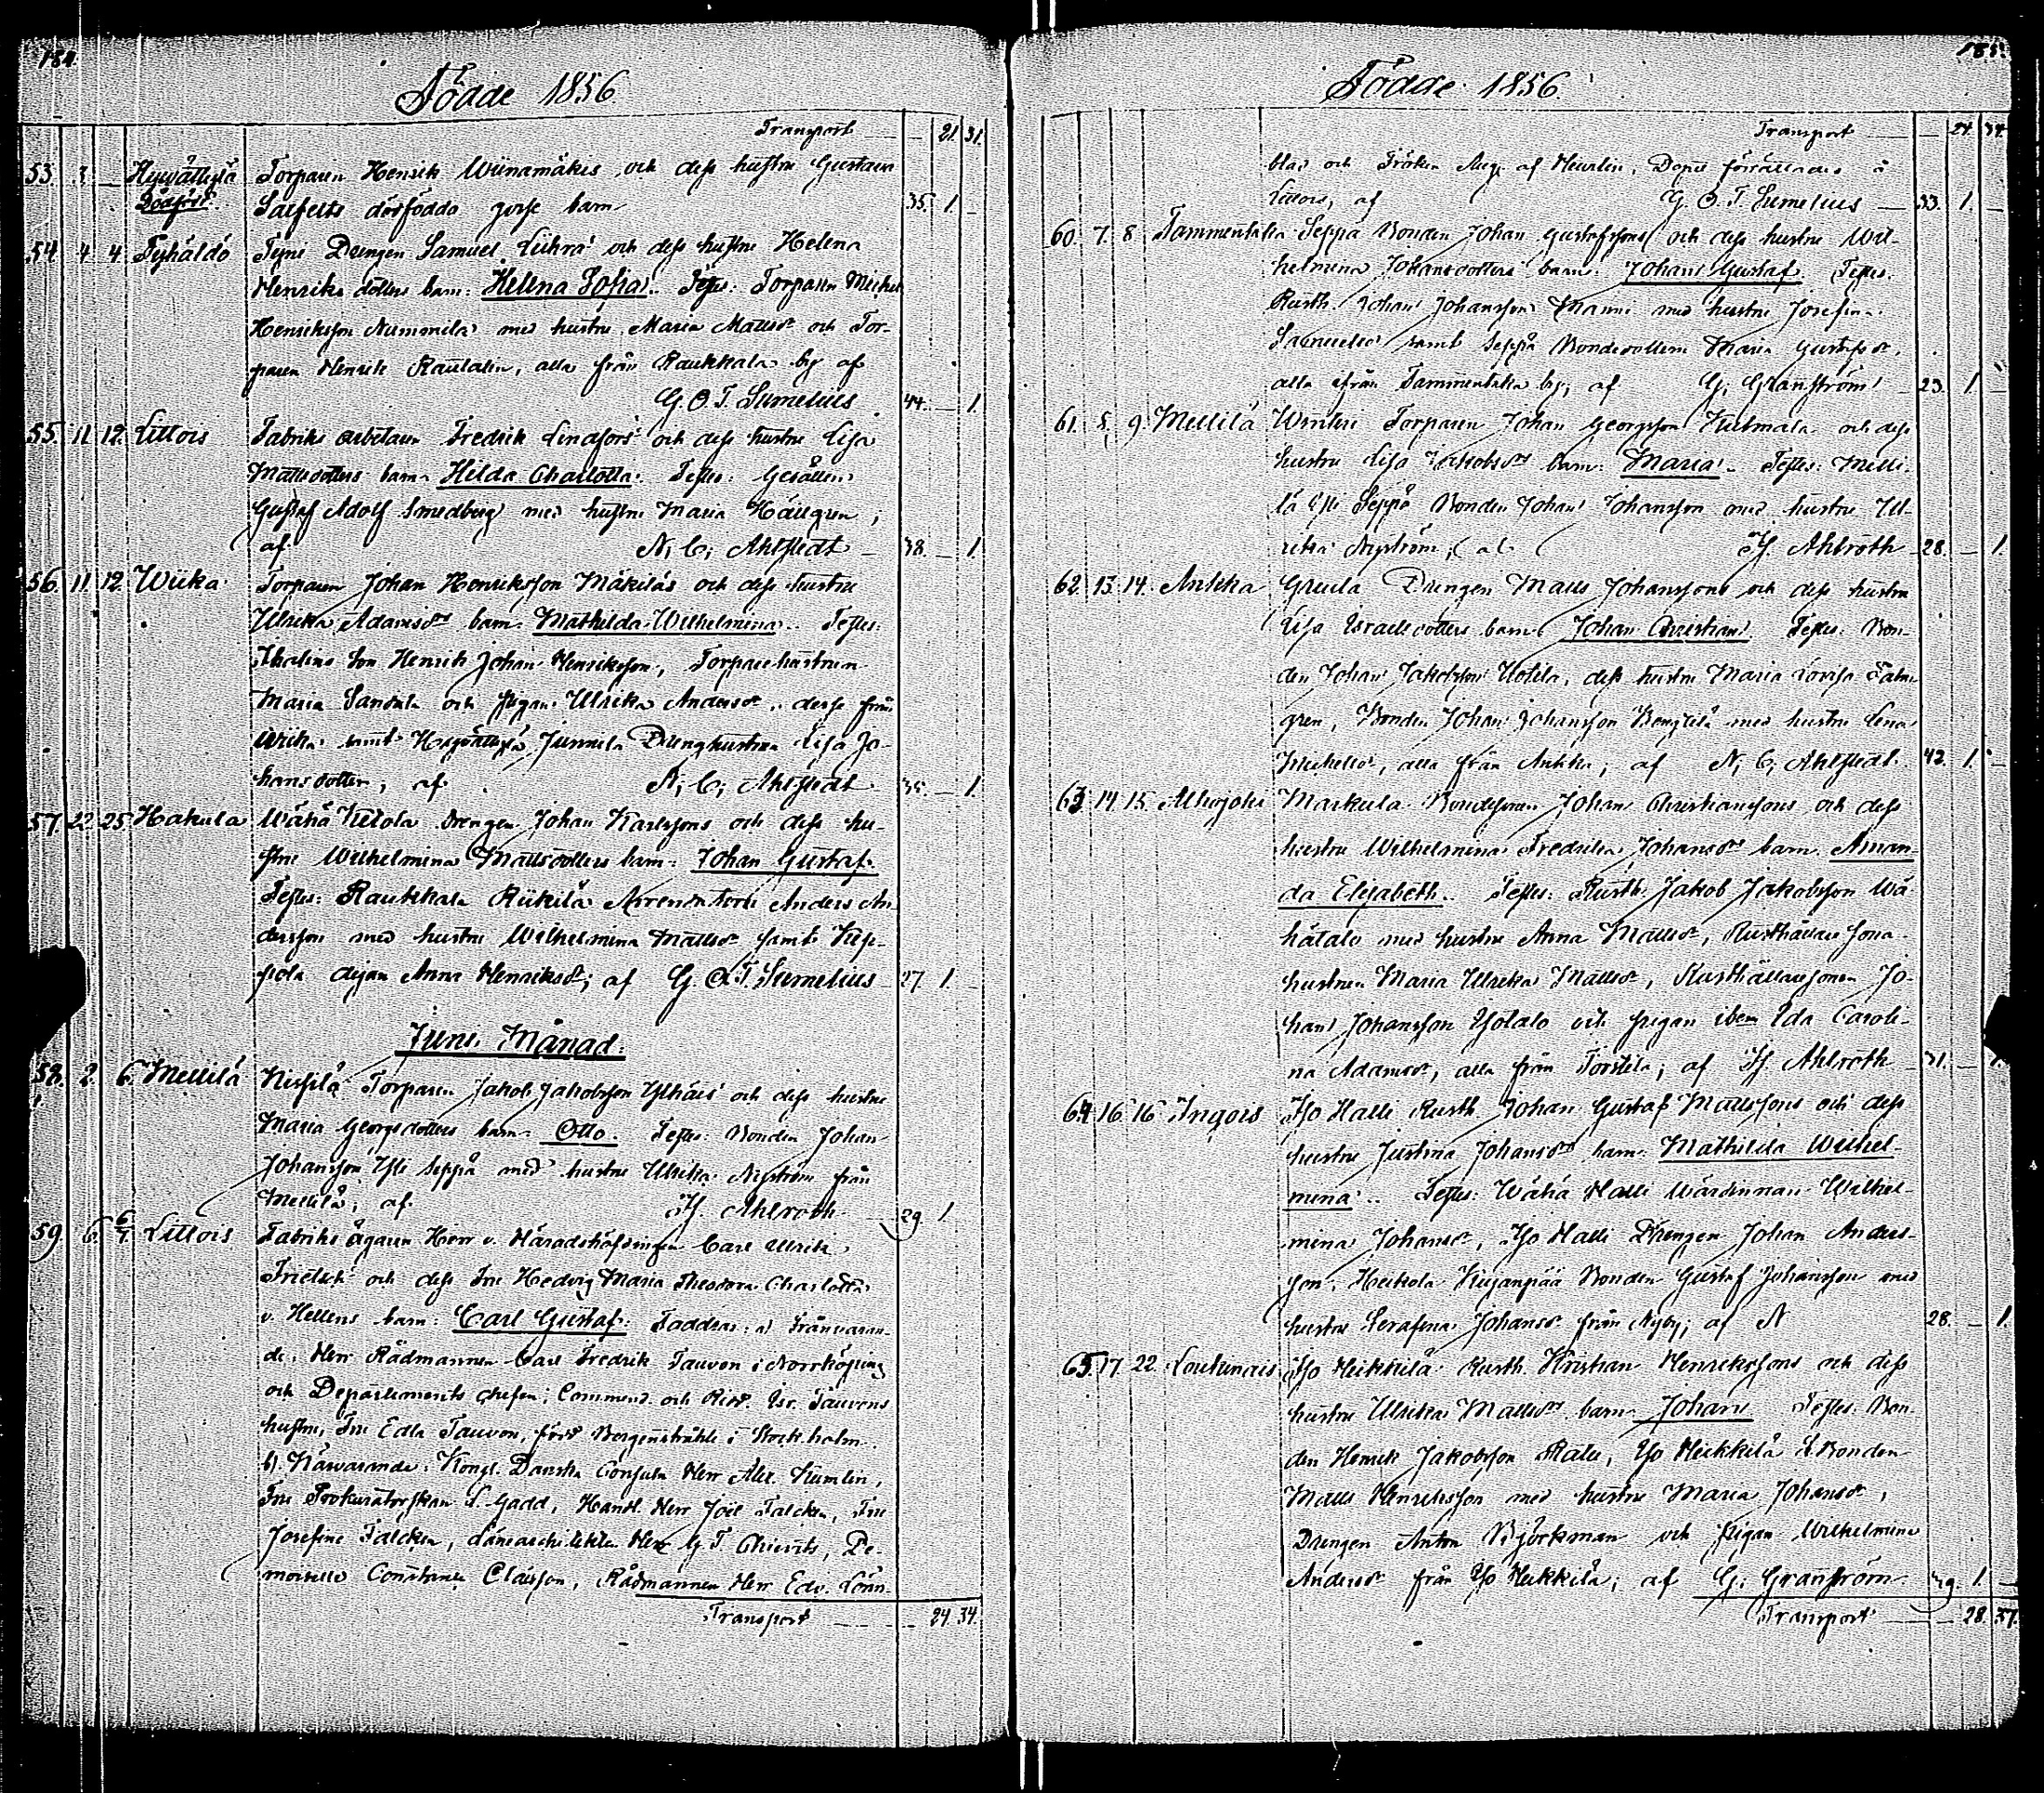 184.
Födde 1856.
Transport — 21. 31.
53. 3. — Hyvättylä Torparen Henrik Wiinamäkis och dess hustru Gustava
Dödförd. Salfelts dödfödda gosse barn 35. 1. —
54. 4. 4. Tyhäldö Tyni Drengen Samuel Liihra och dess hustru Helena
Henriks dotters barn: Helena Sofia. Testes: Torparen Michel
Henriksson Nummila med hustru Maria Mattsdr och Tor-
paren Henrik Rautalin, alla från Raukkala by af
G. O. T. Sumelius 44. — 1.
55. 11. 12. Littois Fabriks arbetaren Fredrik Lindfors och dess hustru Lisa
Mattsdotters barn: Hilda Charlotta. Testes: Gesällen
Gustaf Adolf Smedberg med hustru Maria Hällgren;
af N. C. Ahlstedt — 38. — 1.
56. 11. 12. Wiika Torparen Johan Henriksson Mäkiläs och dess hustru
Ulrika Adamsdrs barn: Mathilda Wilhelmina. Testes:
Thalins son Henrik Johan Henriksson, Torpare hustrun
Maria Sandula och pigan Ulrika Andersdr, desse från
Wiika samt Hyvättylä Junnila Drenghustrun Lisa Jo-
hansdotter, af N. C. Ahlstedt 35. — 1.
57. 22. 25. Hakula Wähä Kiitola drengen Johan Karlssons och dess hu-
stru Wilhelmina Mattsdotters barn: Johan Gustaf.
Testes: Raukkala Riikilä Arrendatorn Anders An-
dersson med hustru Wilhelmina Mattsdr samt
pola dejan Anna Henriksdr; af G. O. T. Sumelius 27. 1. —
Juni Månad.
58. 2. 6. Mellilä Kissilä Torparen Jakob Jakobsson Ylhäis och dess hustru
Maria Georgsdotters barn: Otto. Testes: Bonden Johan
Johansson Yli Seppä med hustru Ulrika Nyström från
Mellilä; af H. Ahlroth 29. 1.
59. 6. 6/7. Littois Fabriks ägaren Herr v. Häradshöfdingen Carl Ulrik
Frietsch och dess Fru Hedvig Maria Theodora Charlotta
v. Hellens barn: Carl Gustaf. Faddrar: a) Frånvaran-
de: Herr Rådmannen Carl Fredrik Tauvon i Norrköping
och Departements chefen, Commend. och Ridd. Isr. Tauvons
hustru, Fru Edla Tauvon, född Bergenstråhle i Stockholm.
b). Närvarande: Kongl. Danska Consuln Herr Alex. Kumlin,
Fru Prokuratorskan L. Gadd, Handl. Herr Joel Falcken, Fru
Josefine Falcken, Länearchitekten Herr G. T. Chiewitz, De-
moiselle Constance Clässon, Rådmannen Herr Edv. Lönn-
Transport — 24. 34.
185.
Födde 1856.
Transport — 24. 34.
blad och Fröken Aug. af Heurlin. Dopet förrättades å
Littois, af G. O. T. Sumelius — 33. 1. —
60. 7. 8. Tammentaka Seppä Bonden Johan Gustafssons och dess hustru Wil-
helmina Johansdotters barn: Johan Gustaf. Testes:
Rusth. Johan Johansson Manni med hustru Josefina
Samuelsdr samt Seppä Bondedottern Maria Gustafsdr,
alla ifrån Tammentaka by; af G. Granström 23. 1. —
61. 8. 9. Mellilä Wintiri Torparen Johan Georgsson Kulmala och dess
hustru Lisa Jakobsdrs barn: Maria. Testes: Melli-
lä Yli Seppä Bonden Johan Johansson med hustru Ul-
rika Nyström; af H. Ahlroth 28. — 1.
62. 13. 14. Ankka Greula Drengen Matts Johanssons och dess hustru
Lisa Israelsdotters barn: Johan Christian. Testes: Bon-
den Johan Jakobsson Uotila, dess hustru Maria Lovisa Palm-
gren, Bonden Johan Johansson Bengtilä med hustru Lena
Michelsdr, alla från Ankka; af N. C. Ahlstedt 42. 1. —
63. 14. 15. Alhojoki Markula Bondesonen Johan Christianssons och dess
hustru Wilhelmina Fredrika Johansdrs barn: Aman-
da Elisabeth. Testes: Rusth. Jakob Jakobsson Wä-
hätalo med hustru Anna Mattsdr, Rusthållare sona
hustrun Maria Ulrika Mattsdr, Rusthållaresonen Jo-
han Johansson Isotalo och pigan ibm Ida Caroli-
na Adamsdr, alla från Torstila; af H. Ahlroth 31. — 1.
64. 16. 16. Ingois Iso Halli Rusth. Johan Gustaf Mattssons och dess
hustru Justina Johansdrs barn: Mathilda Wilhel-
mina. Testes: Wähä Halli Wärdinnan Wilhel-
mina Johansdr, Iso Halli Drengen Johan Anders-
son, Heikola Kujanpää Bonden Gustaf Johansson med
hustru Serafina Johansdr från Nyby; af N 28. — 1.
65. 17. 22. Loukinais Iso Heikkilä Rusth. Kristian Henrikssons och dess
hustru Ulrika Mattsdrs barn: Johan. Testes: Bon-
den Henrik Jakobsson Ralli, Iso Heikkilä Bonden
Matts Henriksson med hustru Maria Johansdr,
Drengen Anton Björkman och pigan Wilhelmina
Andersdr från Iso Heikkilä; af G. Granström 29. 1. —
Transport — 28. 37.